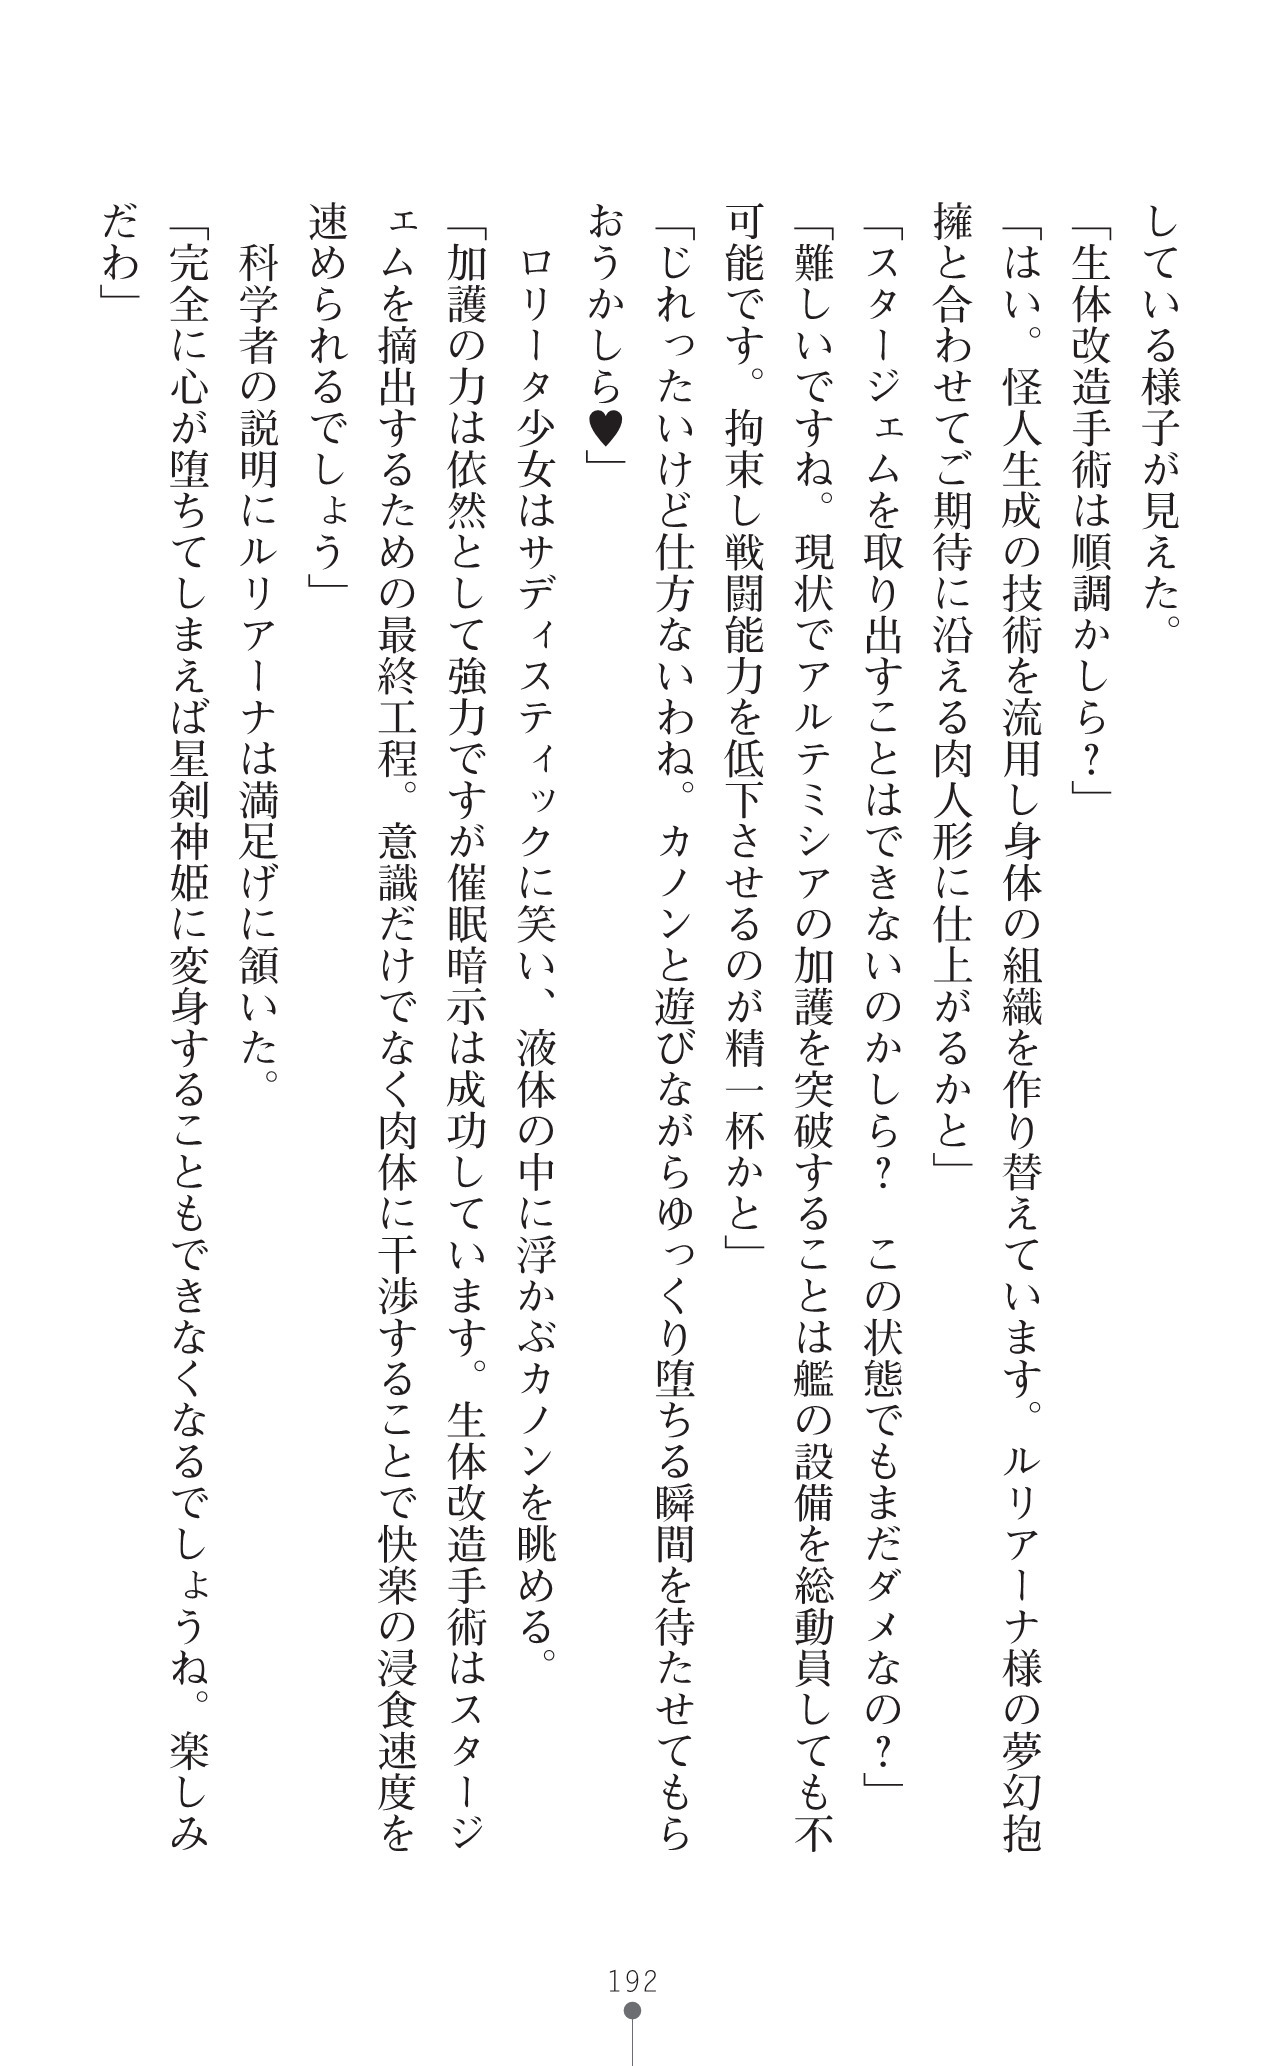 している様子が見えた。
「生体改造手術は順調かしら？」
「はい。怪人生成の技術を流用し身体の組織を作り替えています。ルリアーナ様の夢幻抱
擁と合わせてご期待に沿える肉人形に仕上がるかと」
「スタージェムを取り出すことはできないのかしら？　この状態でもまだダメなの？」
「難しいですね。現状でアルテミシアの加護を突破することは艦の設備を総動員しても不
可能です。拘束し戦闘能力を低下させるのが精一杯かと」
「じれったいけど仕方ないわね。カノンと遊びながらゆっくり堕ちる瞬間を待たせてもら
おうかしら♥」
　ロリータ少女はサディスティックに笑い、液体の中に浮かぶカノンを眺める。
「加護の力は依然として強力ですが催眠暗示は成功しています。生体改造手術はスタージ
ェムを摘出するための最終工程。意識だけでなく肉体に干渉することで快楽の浸食速度を
速められるでしょう」
　科学者の説明にルリアーナは満足げに頷いた。
「完全に心が堕ちてしまえば星剣神姫に変身することもできなくなるでしょうね。楽しみ
だわ」
192